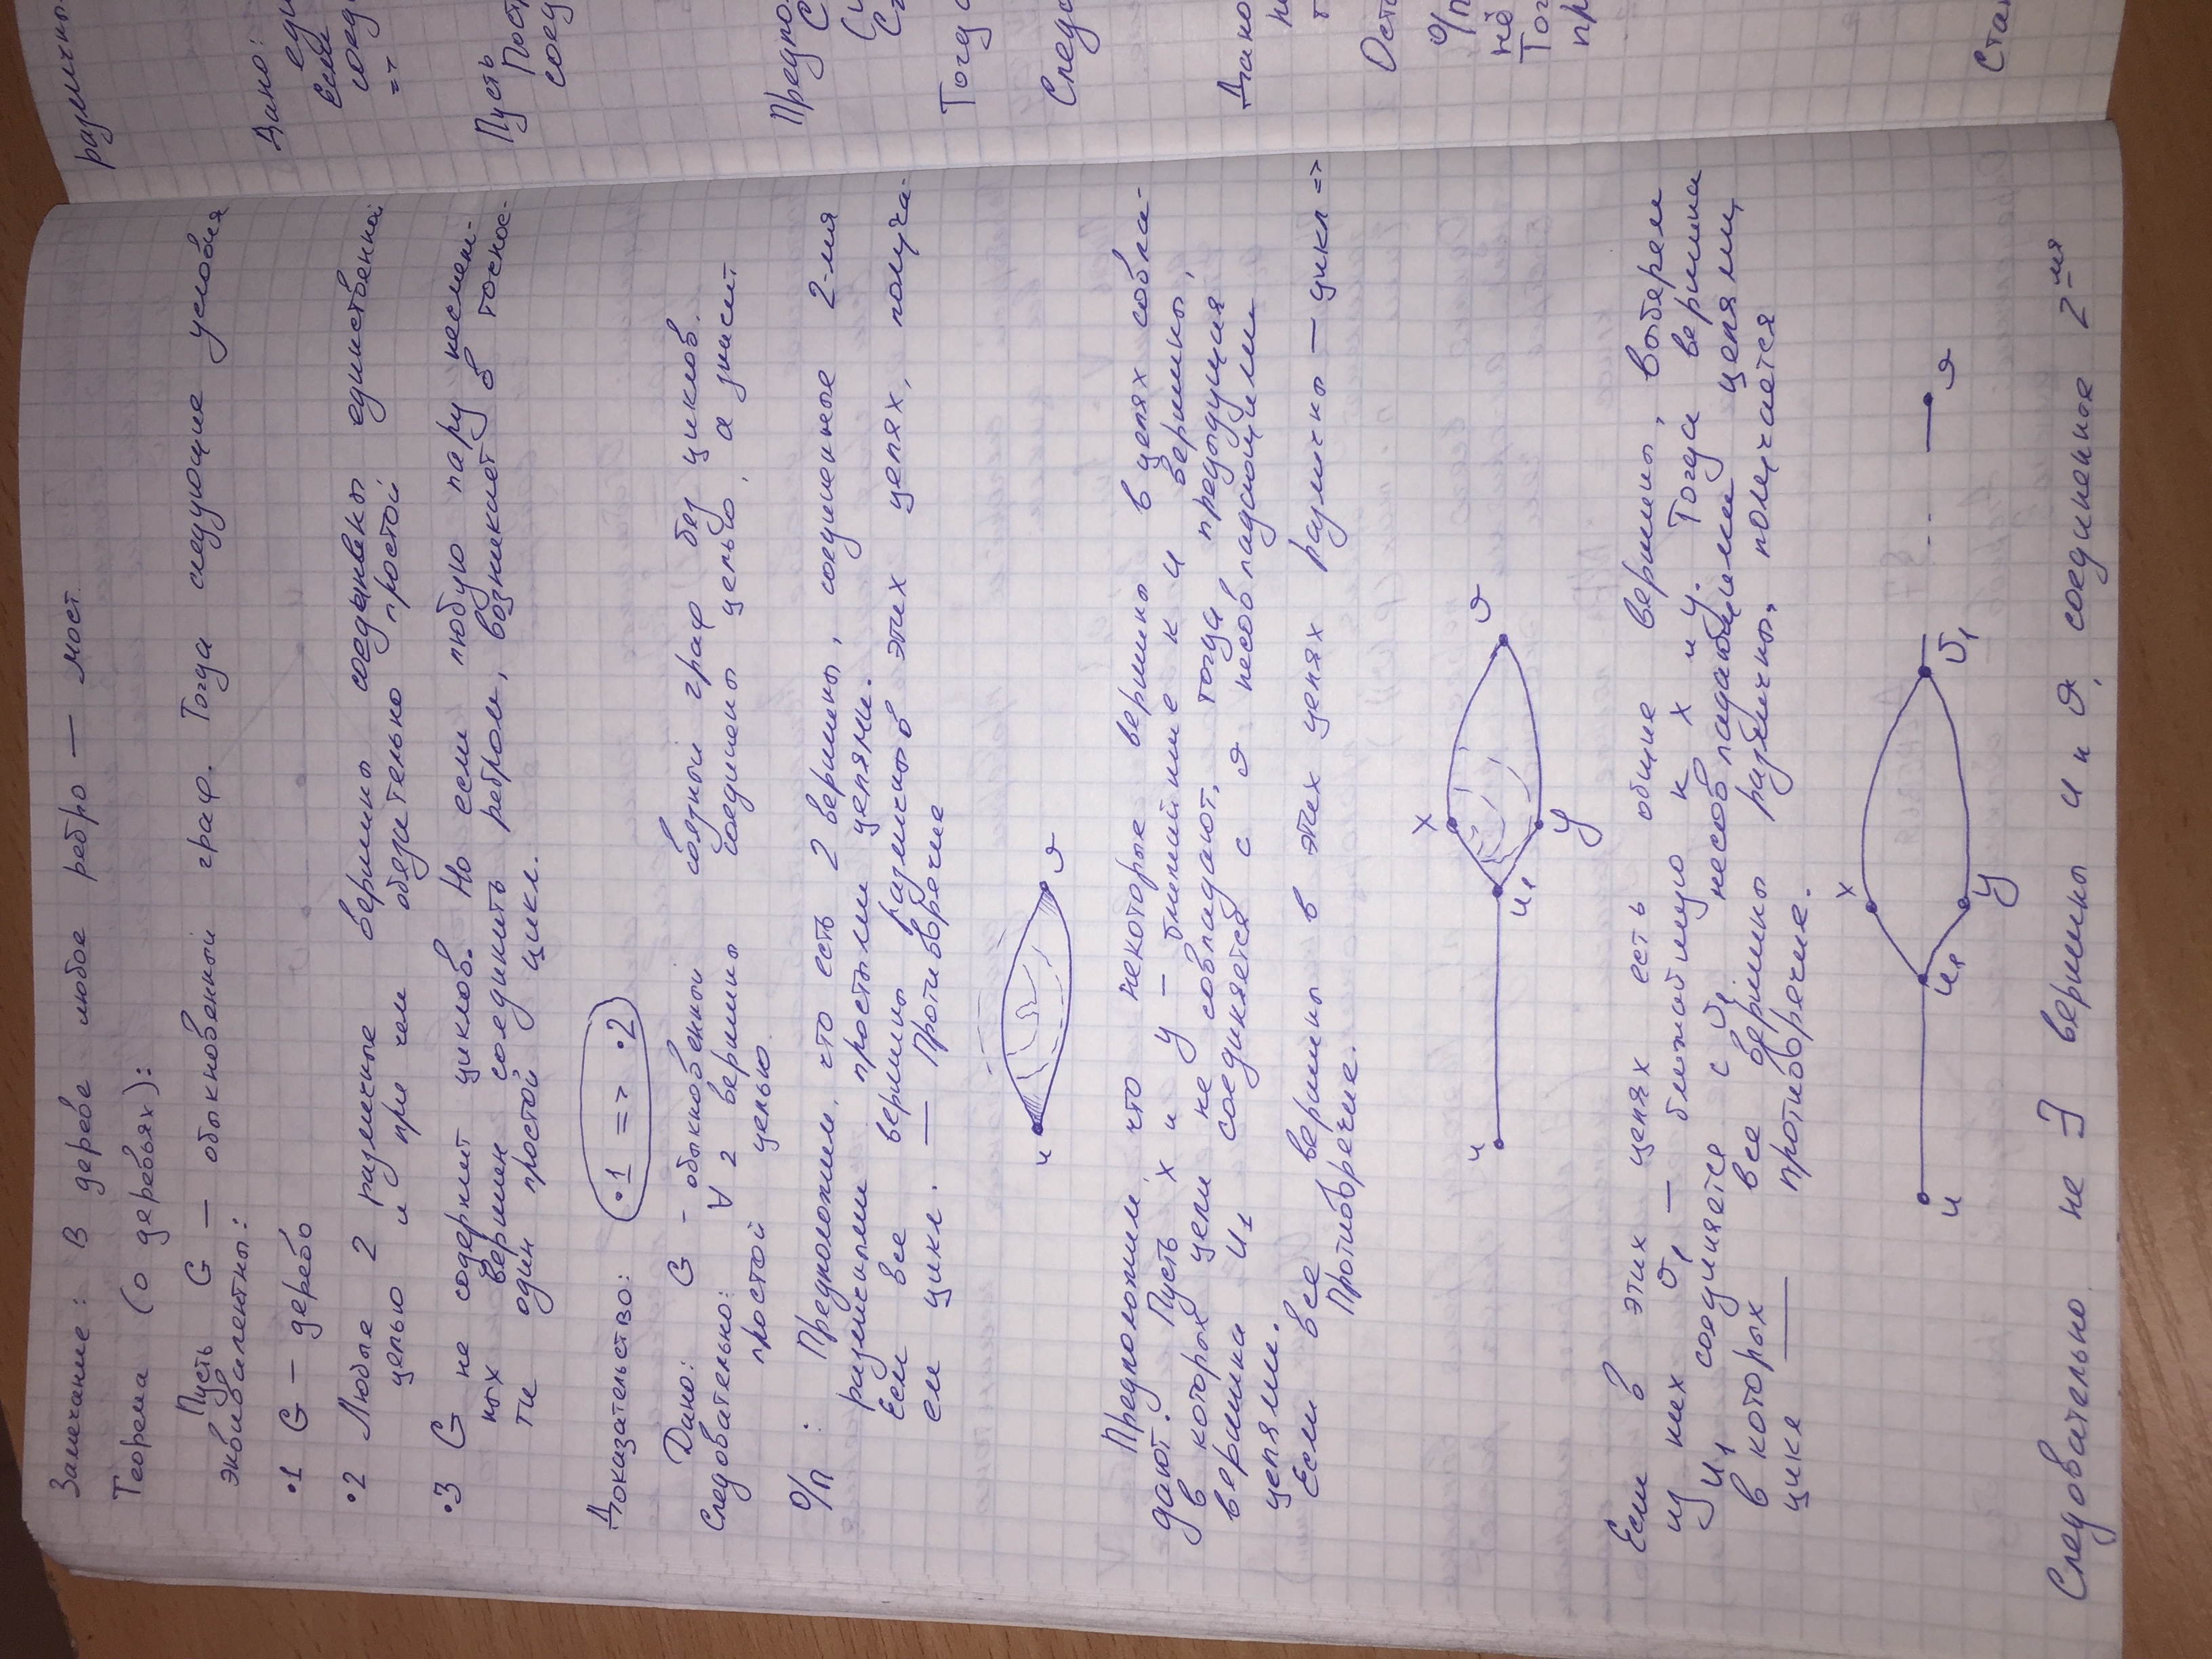 Замечание: В дереве любое ребро — мост.
Теорема (о деревьях):
Пусть G — обыкновенный граф. Тогда следующие условия
эквивалентны:
•1 G — дерево
•2 Любые 2 различные вершины соединены единственной
цепью и при чем обязательно простой
•3 G не содержит циклов. Но если любую пару несмеж-
ных вершин соединить ребром, возникает в точнос-
ти один простой цикл.
Доказательство: •1 => •2
Дано: G - обыкновенный связный граф без циклов.
Следовательно: ∀ 2 вершины соединены цепью, а значит
простой цепью.
О/п : Предположим, что есть 2 вершины, соединенные 2-мя
различными простыми цепями.
Если все вершины различны в этих цепях, получа-
ем цикл. — Противоречие
u v
Предположим, что некоторые вершины в цепях совпа-
дают. Пусть x и y — ближайшие к u вершины,
в которых цепи не совпадают, тогда предыдущая
вершина u₁ соединяется с v несовпадающими
цепями.
Если все вершины в этих цепях различны — цикл =>
Противоречие.
x
u v
u₁
y
Если в этих цепях есть общие вершины, выберем
из них v₁ — ближайшую к x и y. Тогда вершина
u₁ соединяется с v₁ несовпадающими цепями,
в которых все вершины различны, получается
цикл — противоречие.
x
u u₁ v₁ v
y
Следовательно не ∃ вершины u и v, соединенные 2-мя
различны
Дано:
еди
Если
соед
=>
Пусть
Пост
соед
Предпо
С
Тогда
Следо
Дано
не
т
Оста
О/п
не
Тог
пр
Ста